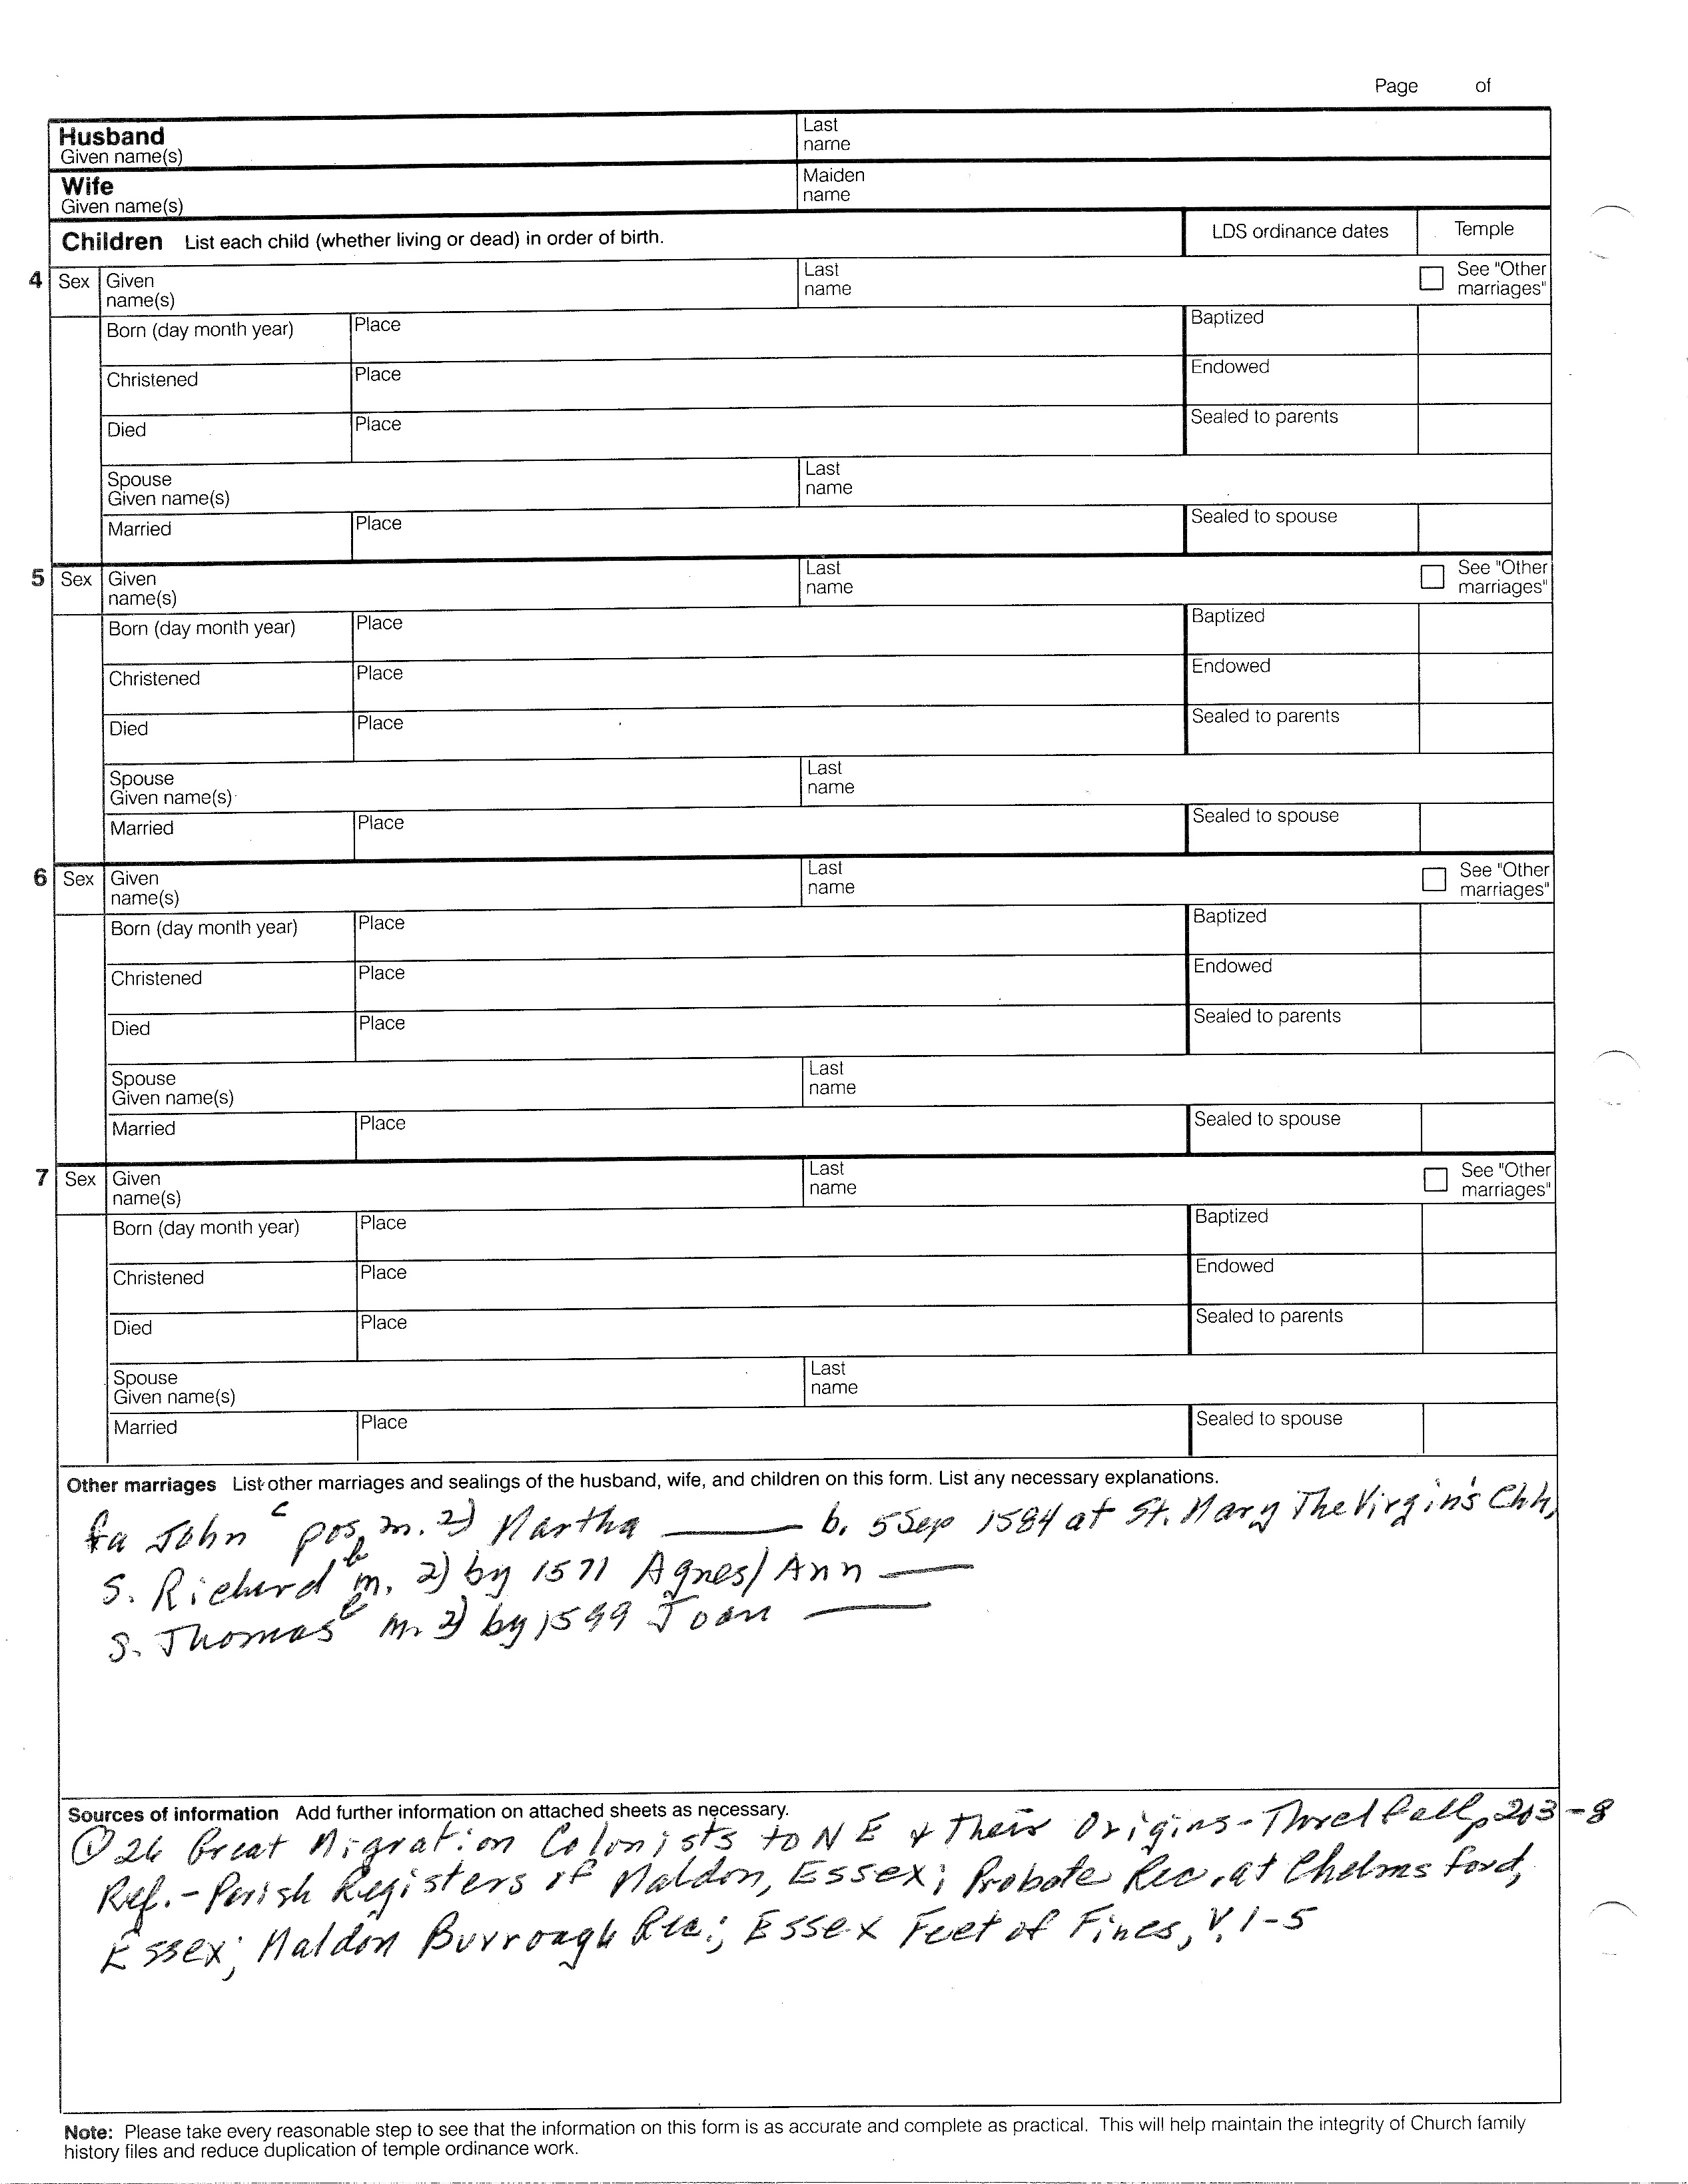 Page of
Husband
Given name(s)
Last
name
Wife
Given name(s)
Maiden
name
Children List each child (whether living or dead) in order of birth.
LDS ordinance dates
Temple
4 Sex Given
name(s)
Last
name
See "Other
marriages"
Born (day month year) Place Baptized
Christened Place Endowed
Died Place Sealed to parents
Spouse
Given name(s)
Last
name
Married Place Sealed to spouse
5 Sex Given
name(s)
Last
name
See "Other
marriages"
Born (day month year) Place Baptized
Christened Place Endowed
Died Place Sealed to parents
Spouse
Given name(s)
Last
name
Married Place Sealed to spouse
6 Sex Given
name(s)
Last
name
See "Other
marriages"
Born (day month year) Place Baptized
Christened Place Endowed
Died Place Sealed to parents
Spouse
Given name(s)
Last
name
Married Place Sealed to spouse
7 Sex Given
name(s)
Last
name
See "Other
marriages"
Born (day month year) Place Baptized
Christened Place Endowed
Died Place Sealed to parents
Spouse
Given name(s)
Last
name
Married Place Sealed to spouse
Other marriages List other marriages and sealings of the husband, wife, and children on this form. List any necessary explanations.
fa John c pos. m. 2) Martha —— b. 5 Sep 1584 at St. Mary The Virgin's Chh,
S. Richard b m. 2) by 1571 Agnes/Ann ——
S. Thomas b m. 2) by 1599 Joan ——
Sources of information Add further information on attached sheets as necessary.
① 26 Great Migration Colonists to NE & Their Origins-Threlfall, p 203-8
Ref.-Parish Registers of Maldon, Essex; Probate Rec. at Chelmsford,
Essex; Maldon Burrough Rec.; Essex Feet of Fines, V. 1-5
Note: Please take every reasonable step to see that the information on this form is as accurate and complete as practical. This will help maintain the integrity of Church family
history files and reduce duplication of temple ordinance work.